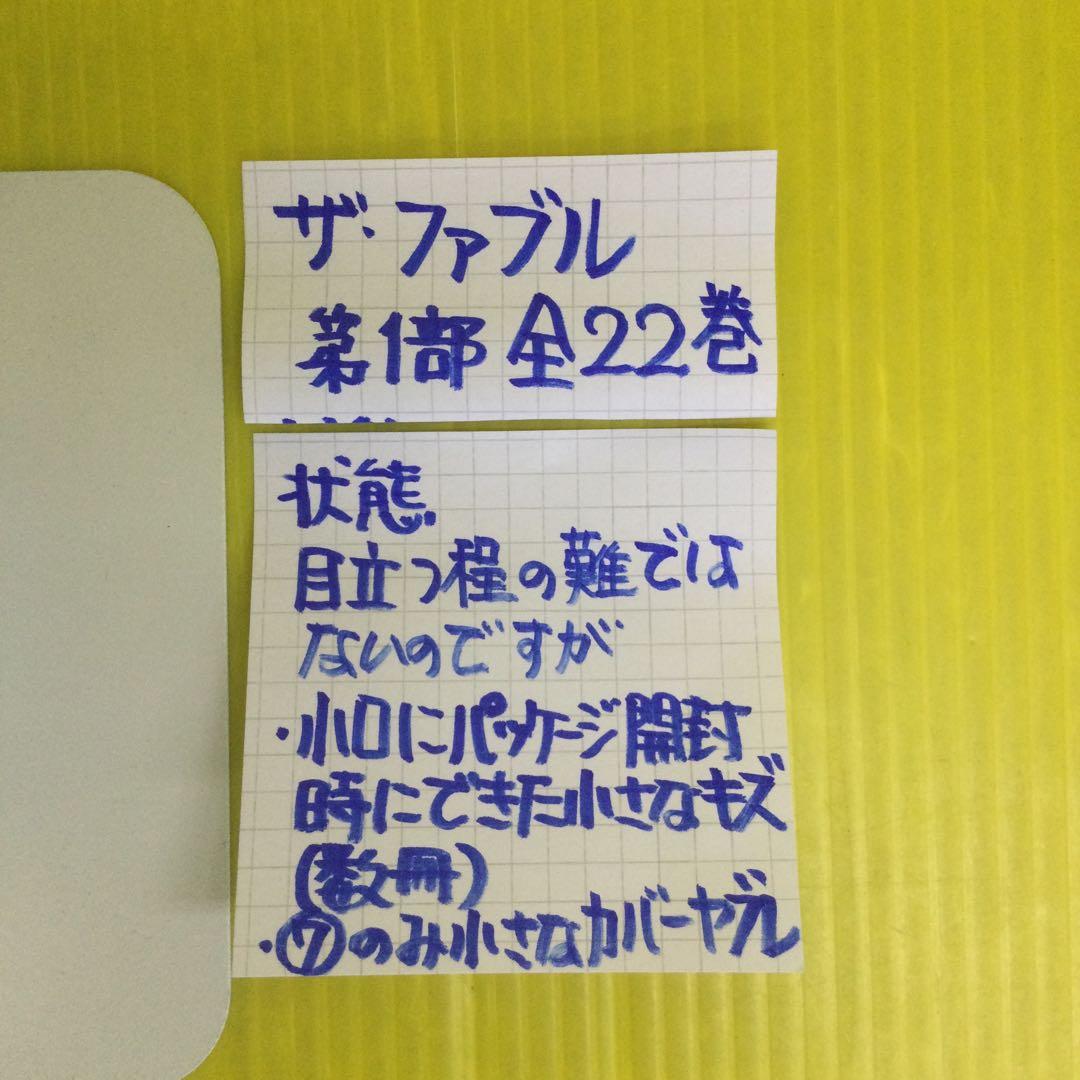 ザ・ファブル
第1部 全22巻
状態
目立つ程の難では
ないのですが
・小口にパッケージ開封
時にできた小さなキズ
(数冊)
・⑦のみ小さなカバーヤブレ